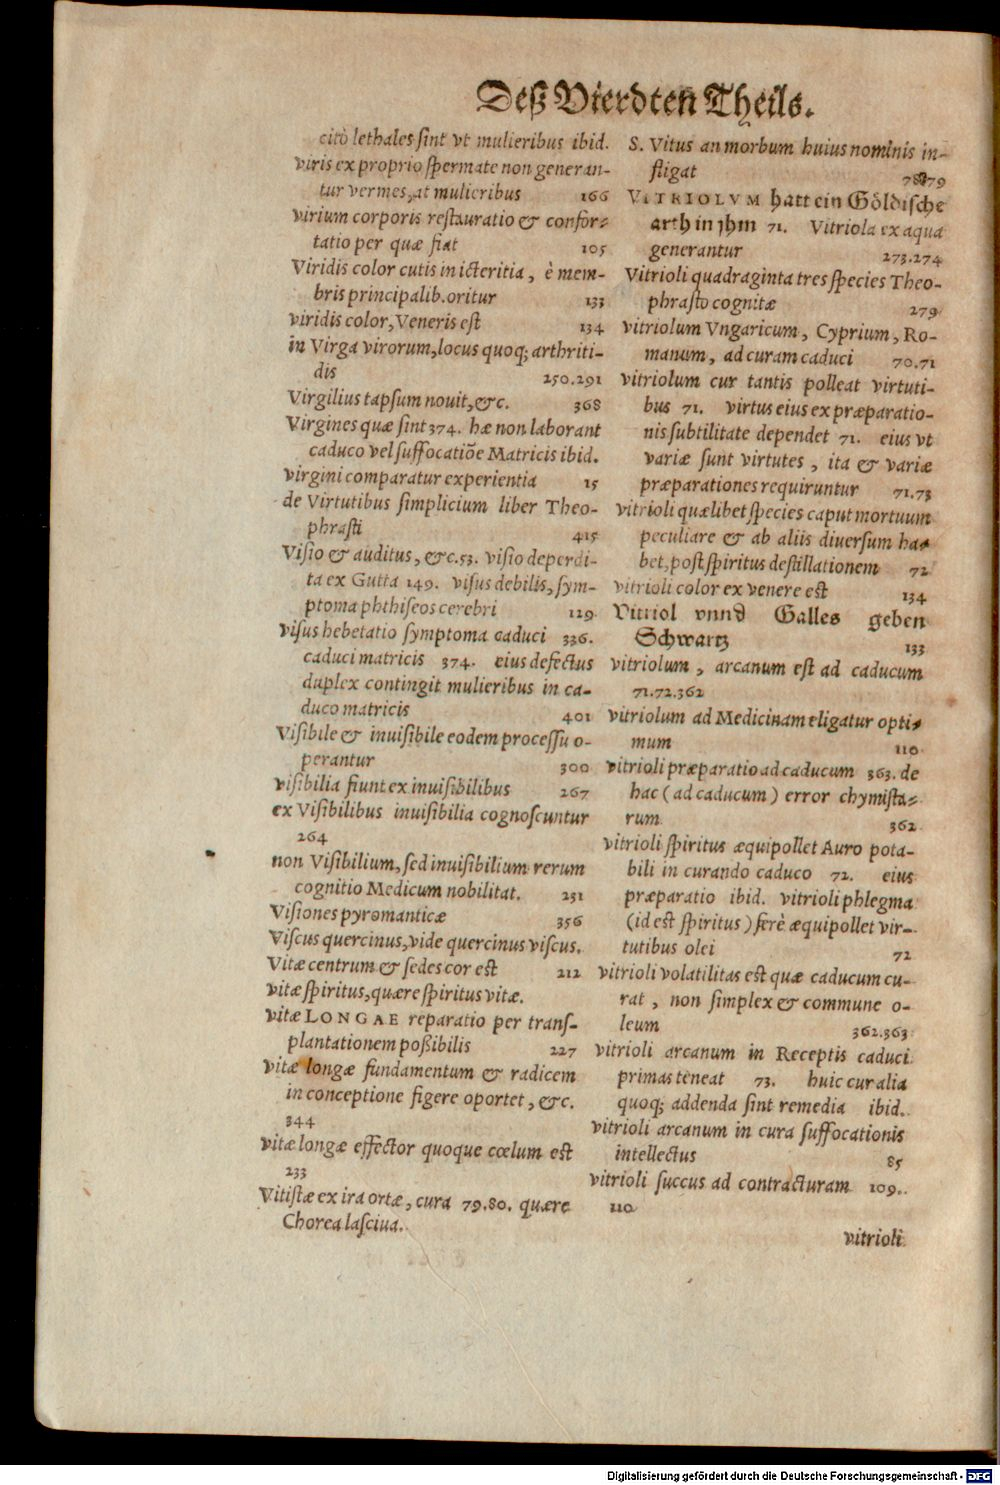 Deß Vierdten Theils.
citò lethales sint vt mulieribus ibid.
viris ex proprio spermate non generan-
tur vermes, at mulieribus 166
virium corporis restauratio & confor-
tatio per quæ fiat 105
Viridis color cutis in icteritia, è mem-
bris principalib. oritur 133
viridis color, Veneris est 134
in Virga virorum, locus quoq; arthriti-
dis 250.291
Virgilius tapsum nouit, &c. 368
Virgines quæ sint 374. hæ non laborant
caduco vel suffocatiõe Matricis ibid.
virgini comparatur experientia 15
de Virtutibus simplicium liber Theo-
phrasti 415
Visio & auditus, &c. 53. visio deperdi-
ta ex Gutta 149. visus debilis, sym-
ptoma phthiseos cerebri 129
visus hebetatio symptoma caduci 336.
caduci matricis 374. eius defectus
duplex contingit mulieribus in ca-
duco matricis 401
Visibile & inuisibile eodem processu o-
perantur 300
visibilia fiunt ex inuisibilibus 267
ex Visibilibus inuisibilia cognoscuntur
264
non Visibilium, sed inuisibilium rerum
cognitio Medicum nobilitat. 251
Visiones pyromanticæ 356
Viscus quercinus, vide quercinus viscus.
Vitæ centrum & sedes cor est 212
vitæ spiritus, quære spiritus vitæ.
vitæ LONGAE reparatio per trans-
plantationem poßibilis 227
vitæ longæ fundamentum & radicem
in conceptione figere oportet, &c.
344
vitæ longæ effector quoque cœlum est
233
Vitistæ ex ira ortæ, cura 79.80. quære
Chorea lasciua.
S. Vitus an morbum huius nominis in-
stigat 78.79
VITRIOLVM hatt ein Göldische
arth in jhm 71. Vitriola ex aqua
generantur 273.274
Vitrioli quadraginta tres species Theo-
phrasto cognitæ 279
vitriolum Vngaricum, Cyprium, Ro-
manum, ad curam caduci 70.71
vitriolum cur tantis polleat virtuti-
bus 71. virtus eius ex præparatio-
nis subtilitate dependet 71. eius vt
variæ sunt virtutes, ita & variæ
præparationes requiruntur 71.73
vitrioli quælibet species caput mortuum
peculiare & ab aliis diuersum ha-
bet, post spiritus destillationem 72
vitrioli color ex venere est 134
Vitriol vnnd Galles geben
Schwartz 133
vitriolum, arcanum est ad caducum
71.72.362
vitriolum ad Medicinam eligatur opti-
mum 110
vitrioli præparatio ad caducum 363. de
hac (ad caducum) error chymista-
rum 362
vitrioli spiritus æquipollet Auro pota-
bili in curando caduco 72. eius
præparatio ibid. vitrioli phlegma
(id est spiritus) ferè æquipollet vir-
tutibus olei 72
vitrioli volatilitas est quæ caducum cu-
rat, non simplex & commune o-
leum 362.363
vitrioli arcanum in Receptis caduci
primas teneat 73. huic cur alia
quoq; addenda sint remedia ibid.
vitrioli arcanum in cura suffocationis
intellectus 85
vitrioli succus ad contracturam 109.
110
vitrioli
Digitalisierung gefördert durch die Deutsche Forschungsgemeinschaft - DFG